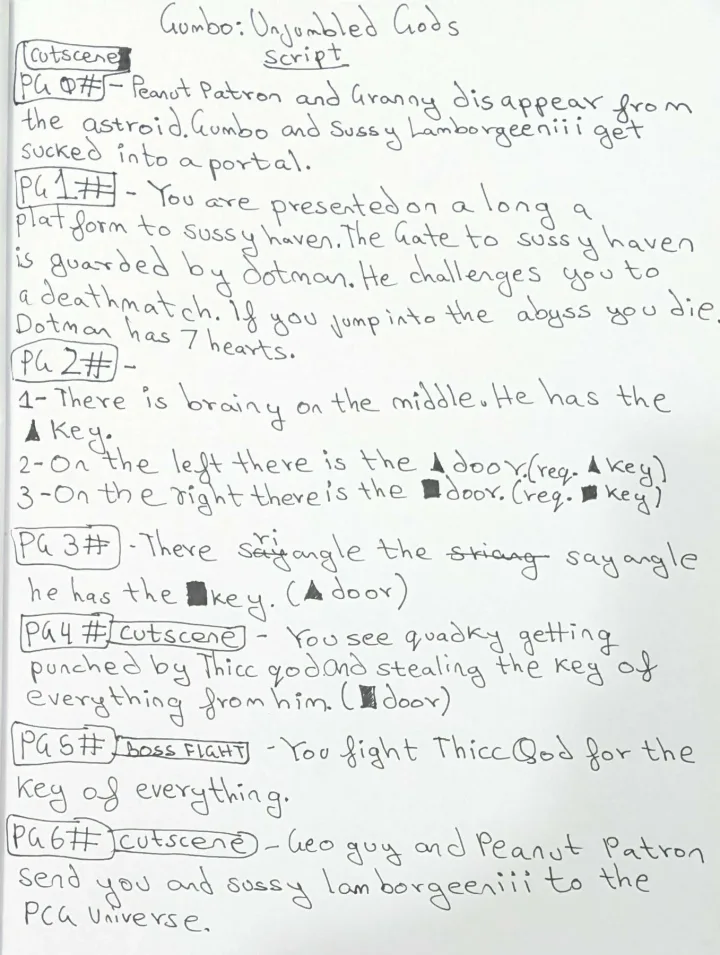 Gumbo: Unjumbled Gods
script
cutscene
PG 0# - Peanut Patron and Granny disappear from
the astroid. Gumbo and Sussy Lamborgeeniii get
sucked into a portal.
PG 1# - You are presented on a long a
platform to sussy haven. The Gate to sussy haven
is guarded by dotman. He challenges you to
a deathmatch. If you jump into the abyss you die.
Dotman has 7 hearts.
PG 2# -
1- There is brainy on the middle. He has the
▲ Key.
2- On the left there is the ▲ door. (req. ▲ key)
3- On the right there is the ■ door. (req. ■ key)
PG 3# - There sariangle the striang sayangle
he has the ■ key. (▲ door)
PG4 # cutscene - You see quadky getting
punched by Thicc god and stealing the key of
everything from him. (■ door)
PG 5# boss FIGHT - You fight Thicc God for the
Key of everything.
PG 6# cutscene - Geo guy and Peanut Patron
send you and sussy lamborgeeniii to the
PCG Universe.